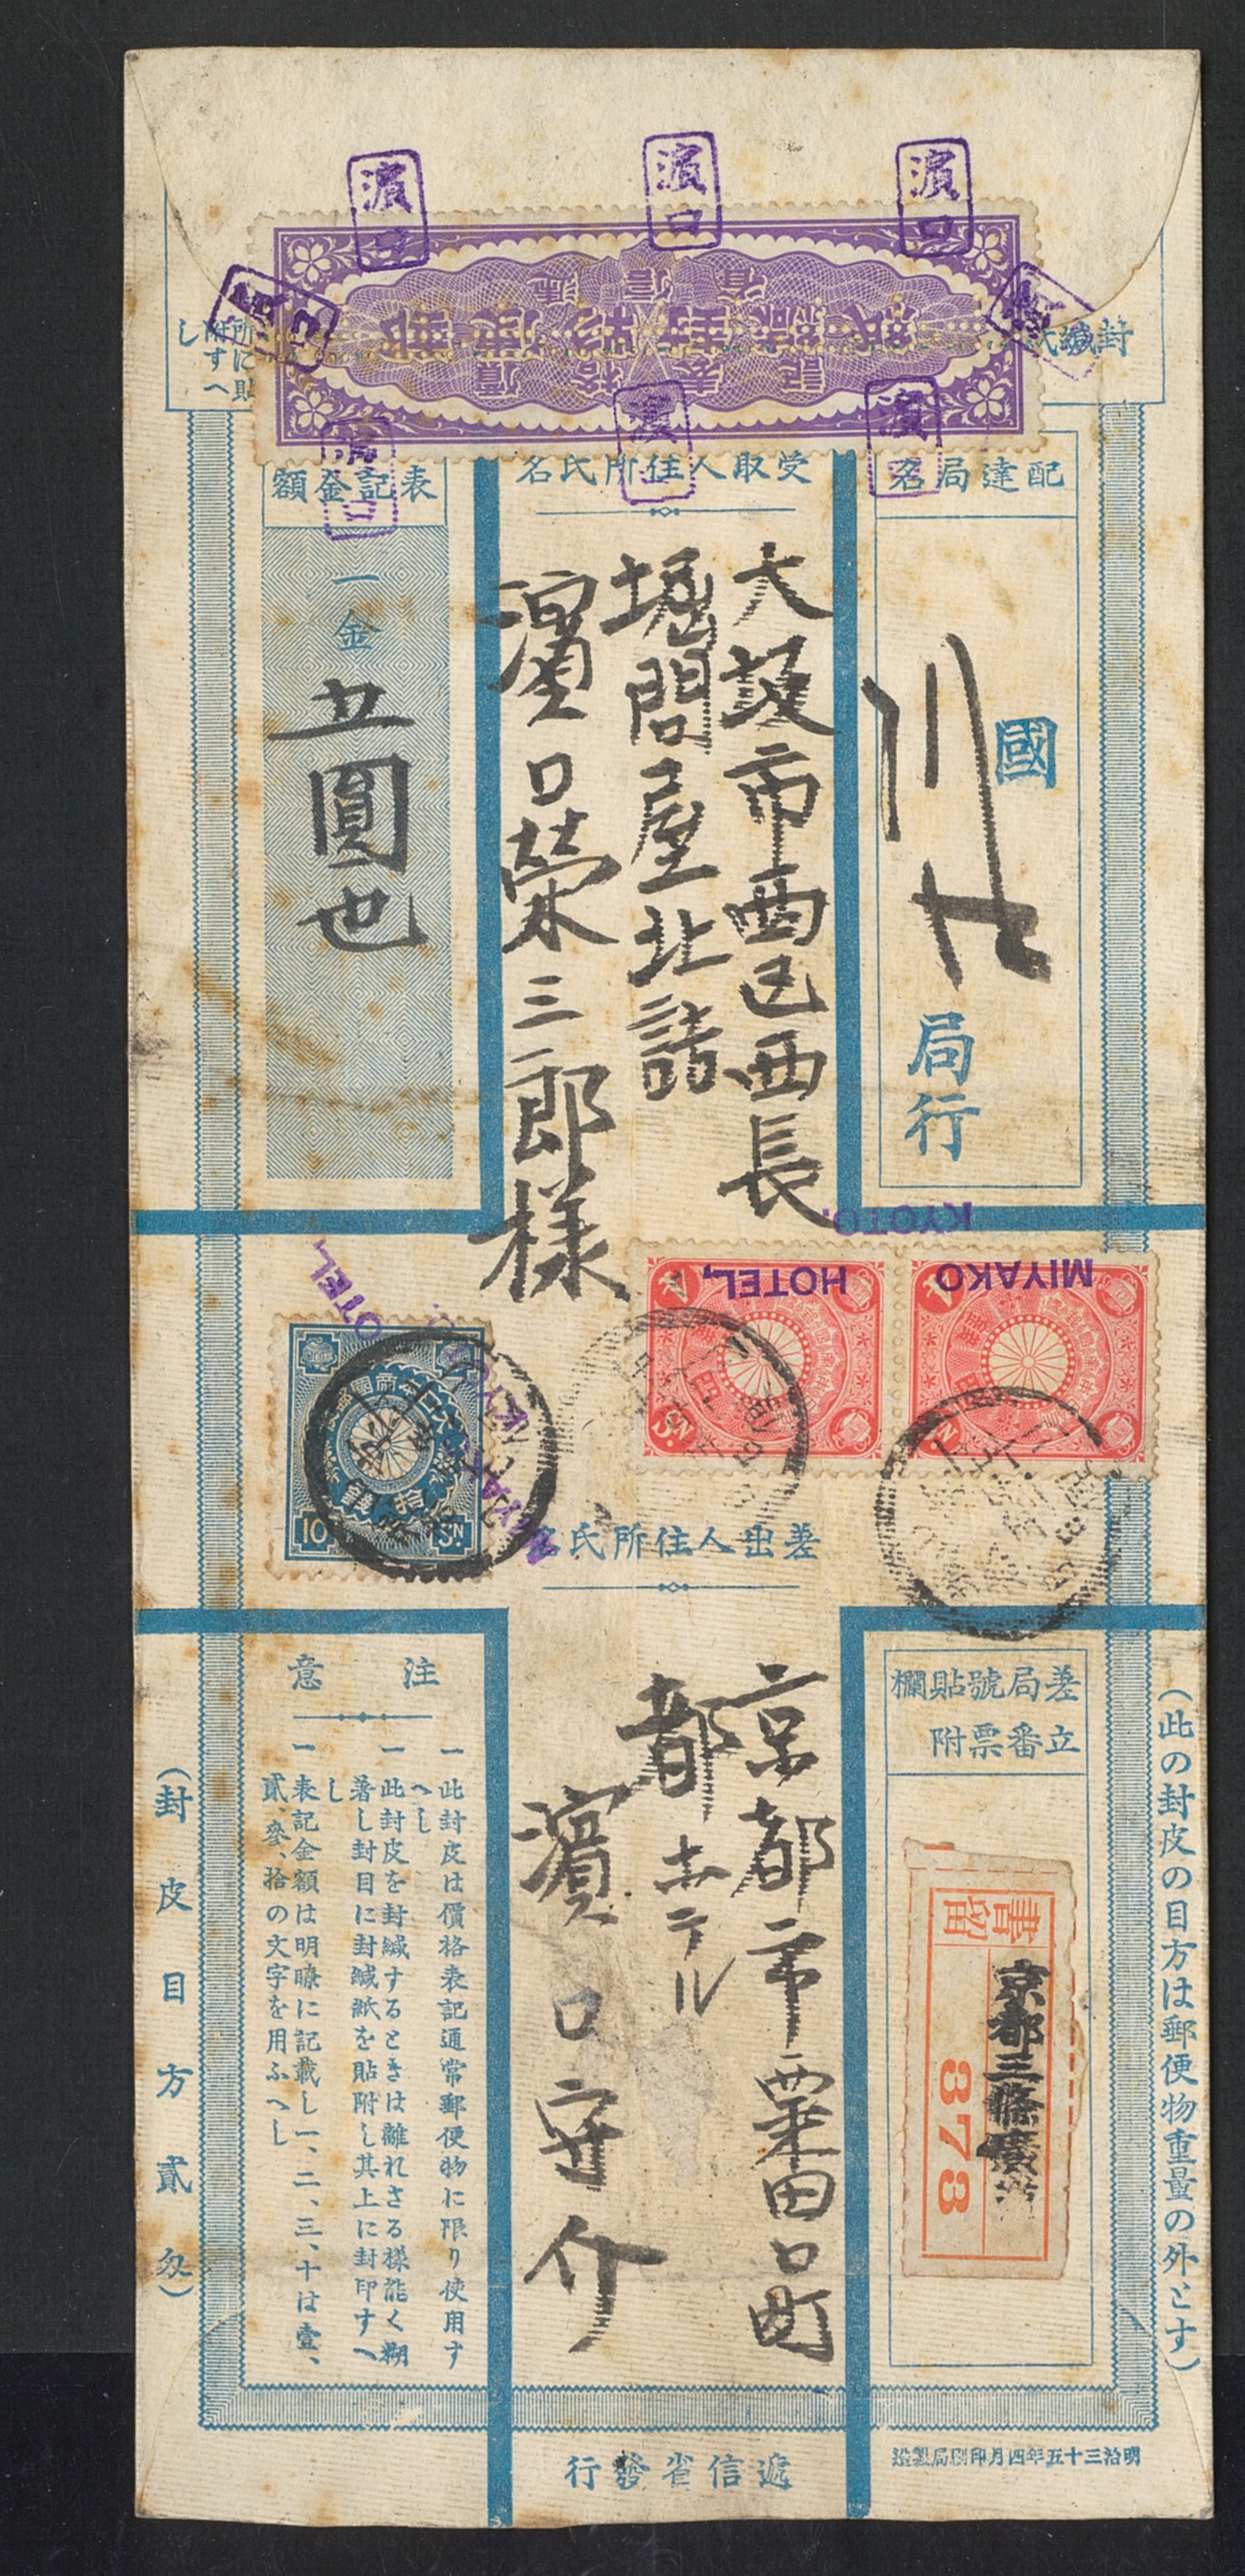 濱口
濱口
濱口
遞信省
郵便物封緘紙
價格表記
封緘
所に貼
附すへ
し
配達局名
國
局行
受取人住所氏名
大阪市西区西長
堀問屋北詰
濱口榮三郎様
表記金額
一金
五圓也
KYOTO.
MIYAKO
HOTEL,
HOTEL,
10
SN.
差出人住所氏名
京都市粟田口町
都ホテル
濱口守介
差立局番號票貼附欄
書留
京都三條
878
注意
一此封皮は價格表記通常郵便物に限り使用す
へし
一此封皮を封緘するときは離れさる樣能く糊
著し封目に封緘紙を貼附し其上に封印すへ
し
一表記金額は明瞭に記載し一、二、三、十は壹、
貳、參、拾の文字を用ふへし
(此の封皮の目方は郵便物重量の外とす)
(封皮目方貳匁)
遞信省發行
明治三十五年四月印刷局製造